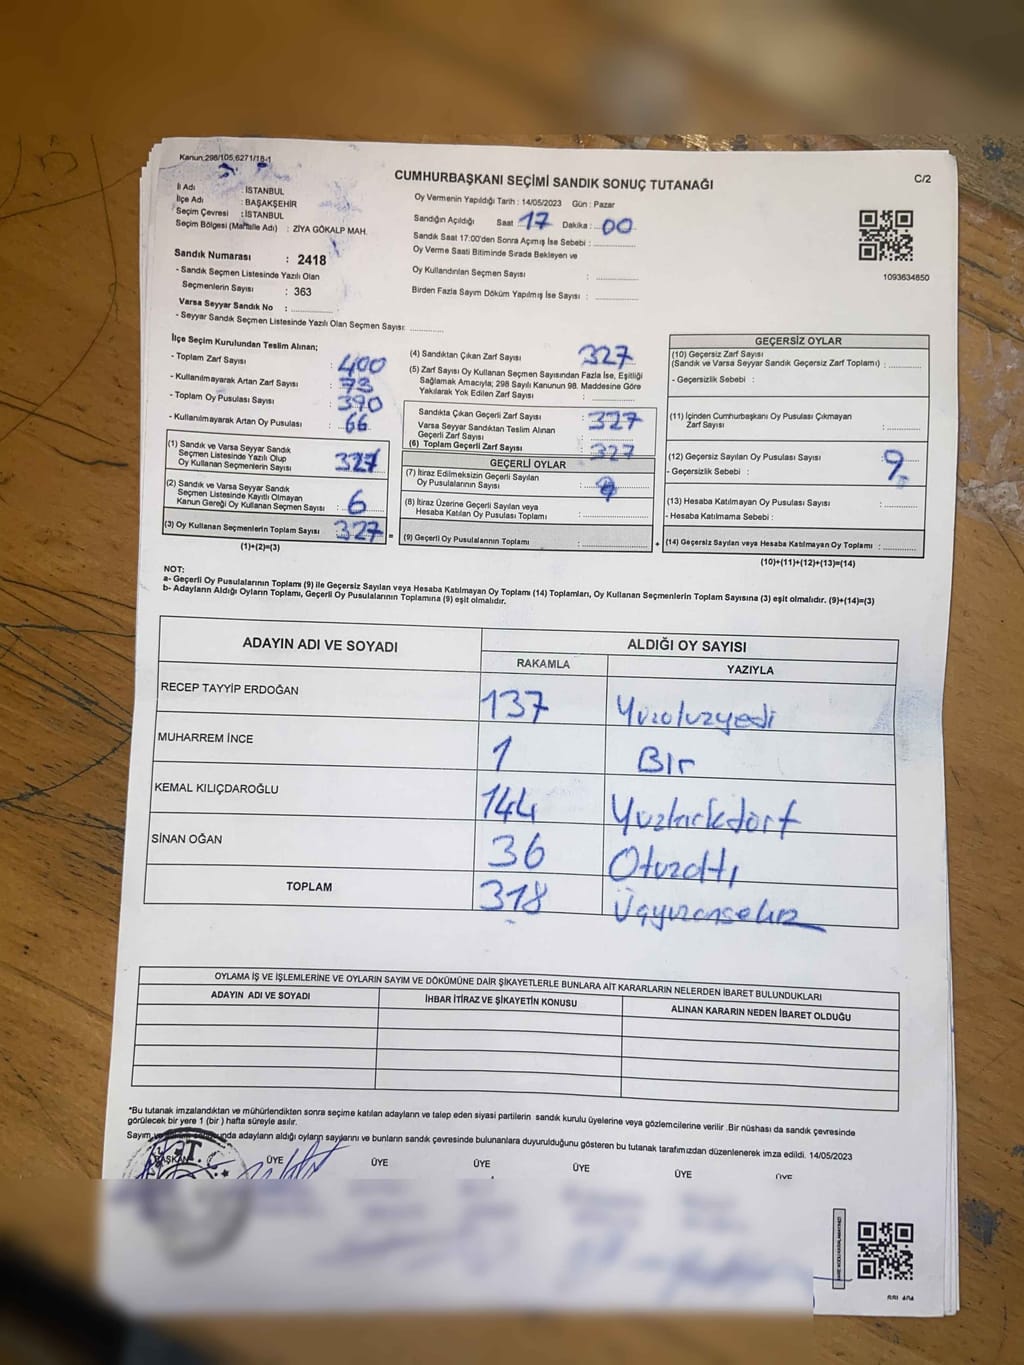 Kanun,298/105,6271/18-1
CUMHURBAŞKANI SEÇİMİ SANDIK SONUÇ TUTANAĞI
C/2
İl Adı : İSTANBUL
İlçe Adı : BAŞAKŞEHİR
Seçim Çevresi : İSTANBUL
Seçim Bölgesi (Mahalle Adı) : ZİYA GÖKALP MAH.
Oy Vermenin Yapıldığı Tarih : 14/05/2023 Gün : Pazar
Sandığın Açıldığı Saat 17 Dakika : 00
Sandık Saat 17:00'den Sonra Açımış İse Sebebi :
Oy Verme Saati Bitiminde Sırada Bekleyen ve
Oy Kullandırılan Seçmen Sayısı :
Birden Fazla Sayım Döküm Yapılmış İse Sayısı :
1093634850
Sandık Numarası : 2418
- Sandık Seçmen Listesinde Yazılı Olan
Seçmenlerin Sayısı : 363
Varsa Seyyar Sandık No :
- Seyyar Sandık Seçmen Listesinde Yazılı Olan Seçmen Sayısı:
İlçe Seçim Kurulundan Teslim Alınan;
- Toplam Zarf Sayısı : 400
- Kullanılmayarak Artan Zarf Sayısı : 73
- Toplam Oy Pusulası Sayısı : 390
- Kullanılmayarak Artan Oy Pusulası : 66
(1) Sandık ve Varsa Seyyar Sandık
Seçmen Listesinde Yazılı Olup
Oy Kullanan Seçmenlerin Sayısı : 327
(2) Sandık ve Varsa Seyyar Sandık
Seçmen Listesinde Kayıtlı Olmayan
Kanun Gereği Oy Kullanan Seçmen Sayısı : 6
(3) Oy Kullanan Seçmenlerin Toplam Sayısı : 327
(1)+(2)=(3)
(4) Sandıktan Çıkan Zarf Sayısı : 327
(5) Zarf Sayısı Oy Kullanan Seçmen Sayısından Fazla İse, Eşitliği
Sağlamak Amacıyla; 298 Sayılı Kanunun 98. Maddesine Göre
Yakılarak Yok Edilen Zarf Sayısı :
Sandıkta Çıkan Geçerli Zarf Sayısı : 327
Varsa Seyyar Sandıktan Teslim Alınan
Geçerli Zarf Sayısı :
(6) Toplam Geçerli Zarf Sayısı : 327
GEÇERLİ OYLAR
(7) İtiraz Edilmeksizin Geçerli Sayılan
Oy Pusulalarının Sayısı :
(8) İtiraz Üzerine Geçerli Sayılan veya
Hesaba Katılan Oy Pusulası Toplamı :
(9) Geçerli Oy Pusulalarının Toplamı :
GEÇERSİZ OYLAR
(10) Geçersiz Zarf Sayısı
(Sandık ve Varsa Seyyar Sandık Geçersiz Zarf Toplamı) :
- Geçersizlik Sebebi :
(11) İçinden Cumhurbaşkanı Oy Pusulası Çıkmayan
Zarf Sayısı :
(12) Geçersiz Sayılan Oy Pusulası Sayısı : 9
- Geçersizlik Sebebi :
(13) Hesaba Katılmayan Oy Pusulası Sayısı :
- Hesaba Katılmama Sebebi :
(14) Geçersiz Sayılan veya Hesaba Katılmayan Oy Toplamı :
(10)+(11)+(12)+(13)=(14)
NOT:
a- Geçerli Oy Pusulalarının Toplamı (9) ile Geçersiz Sayılan veya Hesaba Katılmayan Oy Toplamı (14) Toplamları, Oy Kullanan Seçmenlerin Toplam Sayısına (3) eşit olmalıdır. (9)+(14)=(3)
b- Adayların Aldığı Oyların Toplamı, Geçerli Oy Pusulalarının Toplamına (9) eşit olmalıdır.
ADAYIN ADI VE SOYADI
ALDIĞI OY SAYISI
RAKAMLA YAZIYLA
RECEP TAYYİP ERDOĞAN 137 Yüzotuzyedi
MUHARREM İNCE 1 Bir
KEMAL KILIÇDAROĞLU 144 Yüzkırkdört
SİNAN OĞAN 36 Otuzaltı
TOPLAM 318 Üçyüzonsekiz
OYLAMA İŞ VE İŞLEMLERİNE VE OYLARIN SAYIM VE DÖKÜMÜNE DAİR ŞİKAYETLERLE BUNLARA AİT KARARLARIN NELERDEN İBARET BULUNDUKLARI
ADAYIN ADI VE SOYADI
İHBAR İTİRAZ VE ŞİKAYETİN KONUSU
ALINAN KARARIN NEDEN İBARET OLDUĞU
*Bu tutanak imzalandıktan ve mühürlendikten sonra seçime katılan adayların ve talep eden siyasi partilerin sandık kurulu üyelerine veya gözlemcilerine verilir .Bir nüshası da sandık çevresinde
görülecek bir yere 1 (bir ) hafta süreyle asılır.
Sayım adayların aldığı oyların sayılarını ve bunların sandık çevresinde bulunanlara duyurulduğunu gösteren bu tutanak tarafımızdan düzenlenerek imza edildi. 14/05/2023
BAŞKAN ÜYE ÜYE ÜYE ÜYE ÜYE ÜYE